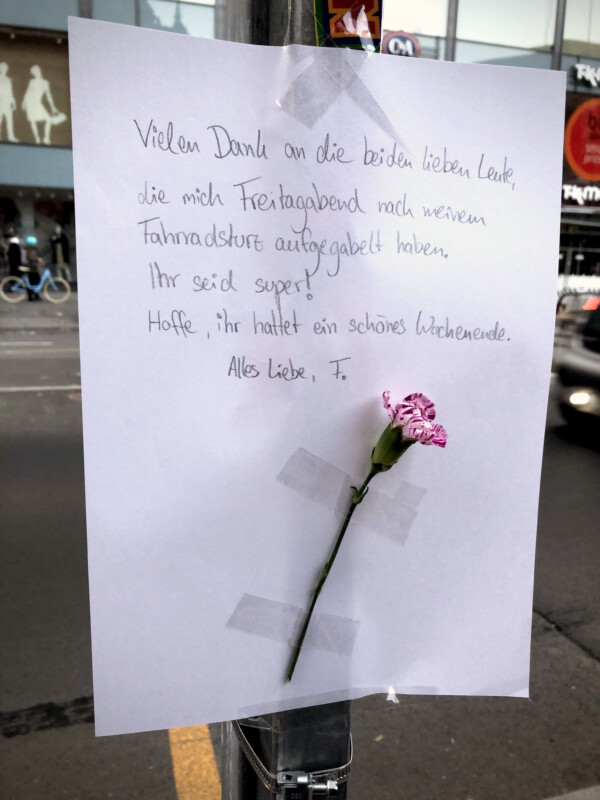 Vielen Dank an die beiden lieben Leute,
die mich Freitagabend nach meinem
Fahrradsturz aufgegabelt haben.
Ihr seid super!
Hoffe, ihr hattet ein schönes Wochenende.
Alles Liebe, F.
C&A